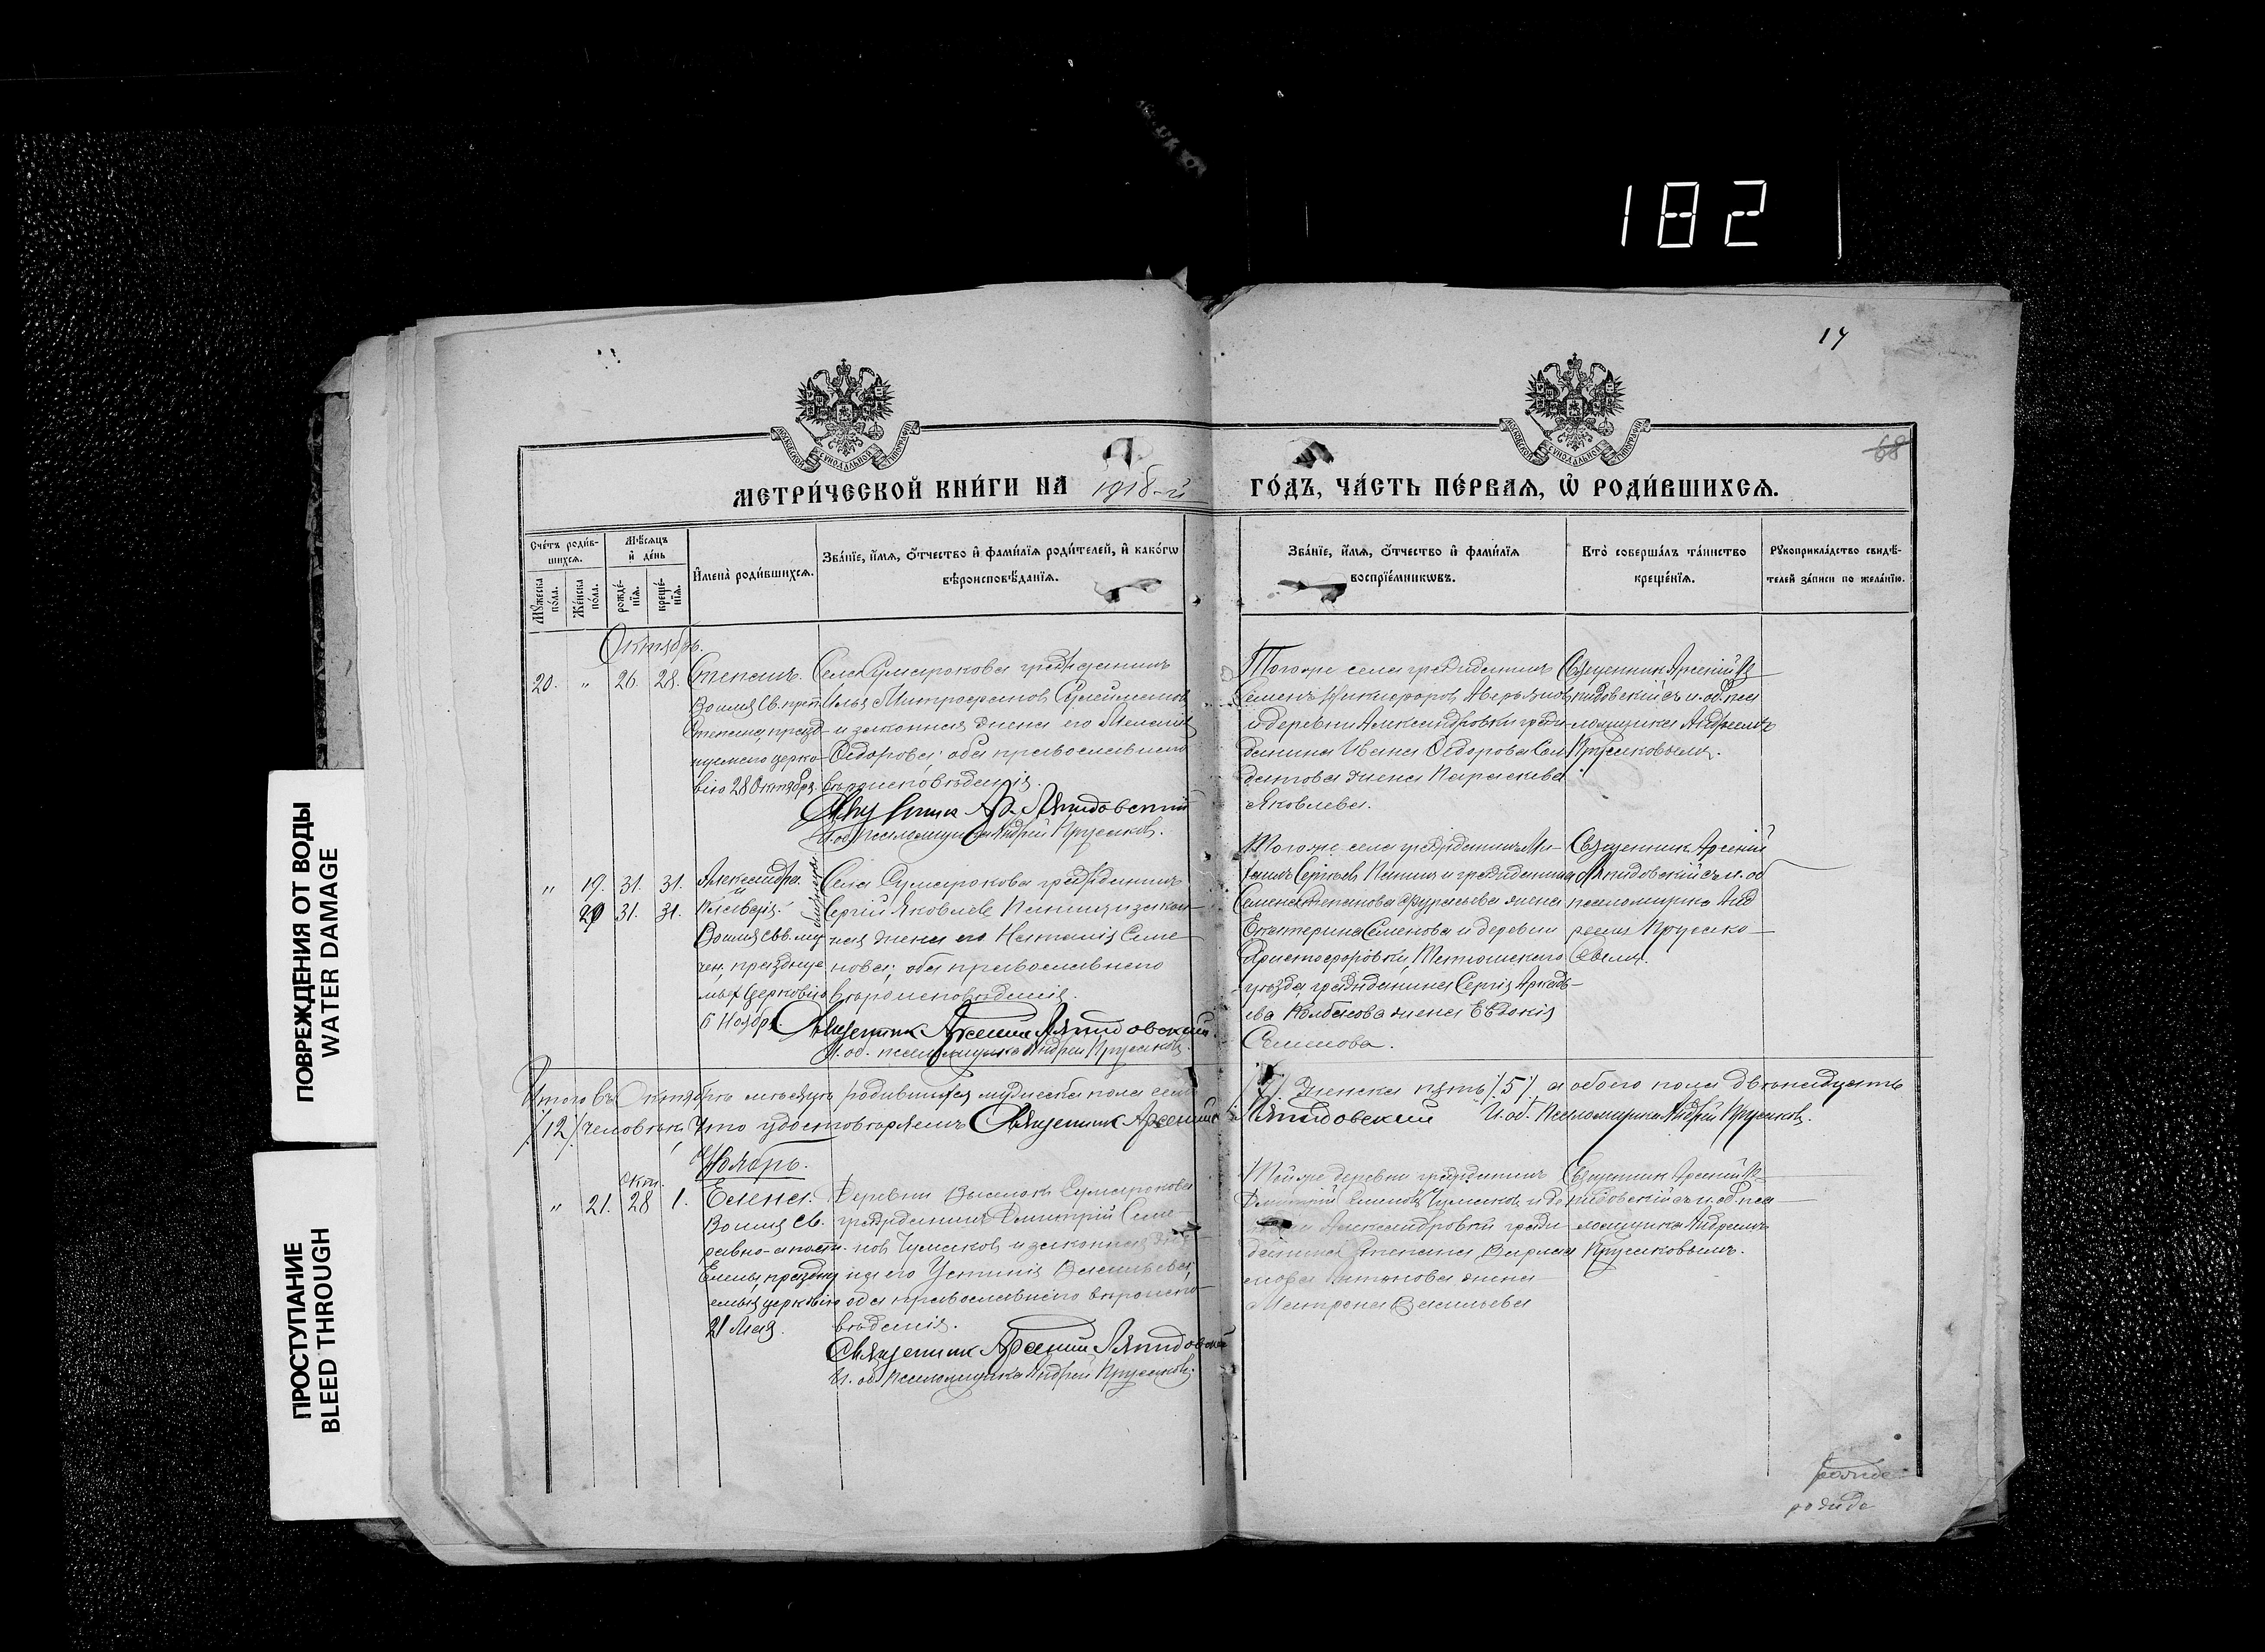 182
17
68
МОСКОВСКОЙ СУНОДАЛЬНОЙ ТИПОГРАФІИ
МОСКОВСКОЙ СУНОДАЛЬНОЙ ТИПОГРАФІИ
МЕТРИ́ЧЕСКОЙ КНИ́ГИ НА 1918-й ГО́ДЪ, ЧА́СТЬ ПЕ́РВАѦ, Ѡ҆ РОДИ́ВШИХСѦ.
Сче́тъ роди́в-
шихсѧ.
Мꙋ́жеска по́ла.
Же́нска по́ла.
Мѣ́сѧцъ и҆ де́нь
рожде́нїѧ.
креще́нїѧ.
И҆мена̀ роди́вшихсѧ.
Зва́нїе, и҆́мѧ, о҆́тчество и҆ фами́лїѧ роди́телей, и҆ како́гѡ
вѣроисповѣ́данїѧ.
Зва́нїе, и҆́мѧ, о҆́тчество и҆ фами́лїѧ
воспрїе́мникѡвъ.
Кто̀ соверша́лъ та́инство
креще́нїѧ.
Рꙋкоприкла́дство свидѣ́-
телей за́писи по жела́нїю.
Октябрь.
20. " 26. 28.
Степанъ.
Во имя Св. преп.
Степана, празд-
нуемаго церко-
вію 28 Октября.
Села Сумарокова гражданинъ
Илья Митрофанов
и законная жена его Меланія
Ѳедорова; оба православнаго
вѣроисповѣданія.
Священник Ар. Ляпидовский
И. об. псаломщика Андрей Крусаков.
Того же села гражданинъ
Семенъ Никифоров Аверьянов
и деревни Александровки граж-
данина Ивана Ѳедорова Сол
датова жена Параскева
Яковлева.
Священник Арсеній Ля-
пидовскій съ и. об. пса-
ломщика Андреемъ
Крусаковымъ.
" 19. 31. 31.
20 31. 31.
Александра
и
Клавдія.
близнецы
Во имя Свв. му-
чен., празднуе
мых Церковію
6 Ноября
Села Сумарокова гражданинъ
Сергій Яковлев Паншин и закон-
ная жена его Наталія Семе-
нова; оба православнаго
вѣроисповѣданія.
Священник Арсений Ляпидовский.
И. об. псаломщика Андрей Крусаков.
Того же села гражданинъ Ми-
хаилъ Сергѣев Паншин и гражданина
Семена Степанова жена
Екатерина Семенова и деревни
Христофоровки, Тетюшскаго
уѣзда, гражданина Сергія Аркадь-
ева Колбасова жена Евдокія
Семенова.
Священник Арсеній
Ляпидовскій съ и. об
псаломщика Анд
реем Крусако-
вым.
Итого въ Октябрѣ мѣсяцѣ родившихся мужеска пола семь /7/ женска пять /5/ а обоего пола двѣнадцать
/12/ человѣкъ, Что удостовѣряемъ Священник Арсений Ляпидовский И. об. Псаломщика Андрей Крусаков.
Ноябрь.
Окт.
" 21. 28 1.
Елена.
Во имя Св.
равно-апостл.
Елены, праздну
емыя церковію
21 Мая.
Деревни Выселок Сумарокова
гражданинъ Дмитрій Семе-
нов Чумаков и законная же-
на его Устинія Васильева,
оба православнаго вѣроиспо-
вѣданія.
Священник Арсений Ляпидовский
И. об. Псаломщика Андрей Крусаков.
Той же деревни гражданинъ
Дмитрій Семенов Чумаков и де-
Александровки граж-
данина Степана Варла
мова Антонова жена
Матрона Васильева
Священник Арсеній Ля-
пидовскій съ и. об. пса-
ломщика Андреемъ
Крусаковымъ.
ПОВРЕЖДЕНИЯ ОТ ВОДЫ
WATER DAMAGE
ПРОСТУПАНИЕ
BLEED THROUGH